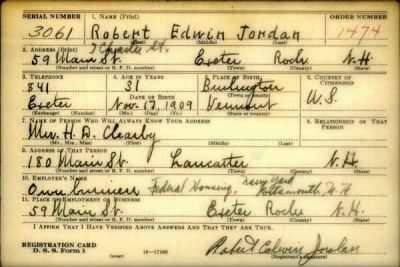 SERIAL NUMBER 1. NAME (Print) ORDER NUMBER
3061 Robert Edwin Jordan 1474
(First) (Middle) (Last)
2. ADDRESS (Print)
59 Main St. Exeter Rock N.H
(Number and street or R. F. D. number) (Town) (County) (State)
3. TELEPHONE 4. AGE IN YEARS 5. PLACE OF BIRTH 6. COUNTRY OF CITIZENSHIP
841 31 Burlington
DATE OF BIRTH (Town or county)
Exeter Nov. 17, 1909 Vermont U.S.
(Exchange) (Number) (Mo.) (Day) (Yr.) (State or country)
7. NAME OF PERSON WHO WILL ALWAYS KNOW YOUR ADDRESS 8. RELATIONSHIP OF THAT PERSON
Mrs. H. A.
(Mr., Mrs., Miss) (First) (Middle) (Last)
9. ADDRESS OF THAT PERSON
180 Main St. Lancaster N.H.
(Number and street or R. F. D. number) (Town) (County) (State)
10. EMPLOYER'S NAME
Own business Federal Housing, Navy Yard Portsmouth, N.H
11. PLACE OF EMPLOYMENT OR BUSINESS
59 Main St. Exeter Rock N.H.
(Number and street or R. F. D. number) (Town) (County) (State)
I AFFIRM THAT I HAVE VERIFIED ABOVE ANSWERS AND THAT THEY ARE TRUE.
REGISTRATION CARD
D. S. S. Form 1 16—17105 Robert Edwin Jordan